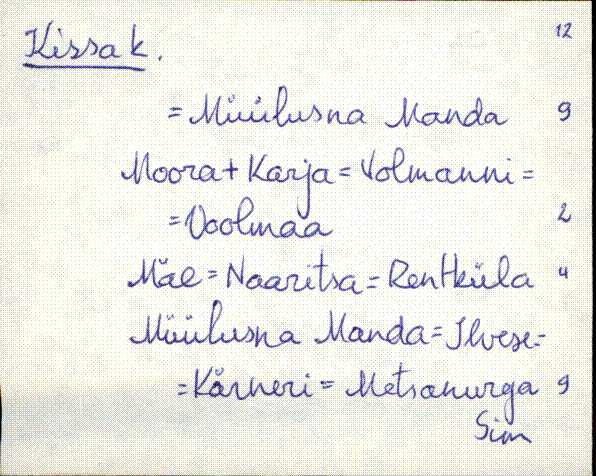 12
Kissa k.
= Müülusna Manda 9
Moora + Karja = Volmanni =
= Voolmaa 2
Mäe = Naaritsa = Rentküla 4
Müülusna Manda = Ilvese =
= Kärneri = Metsanurga 9
Sim